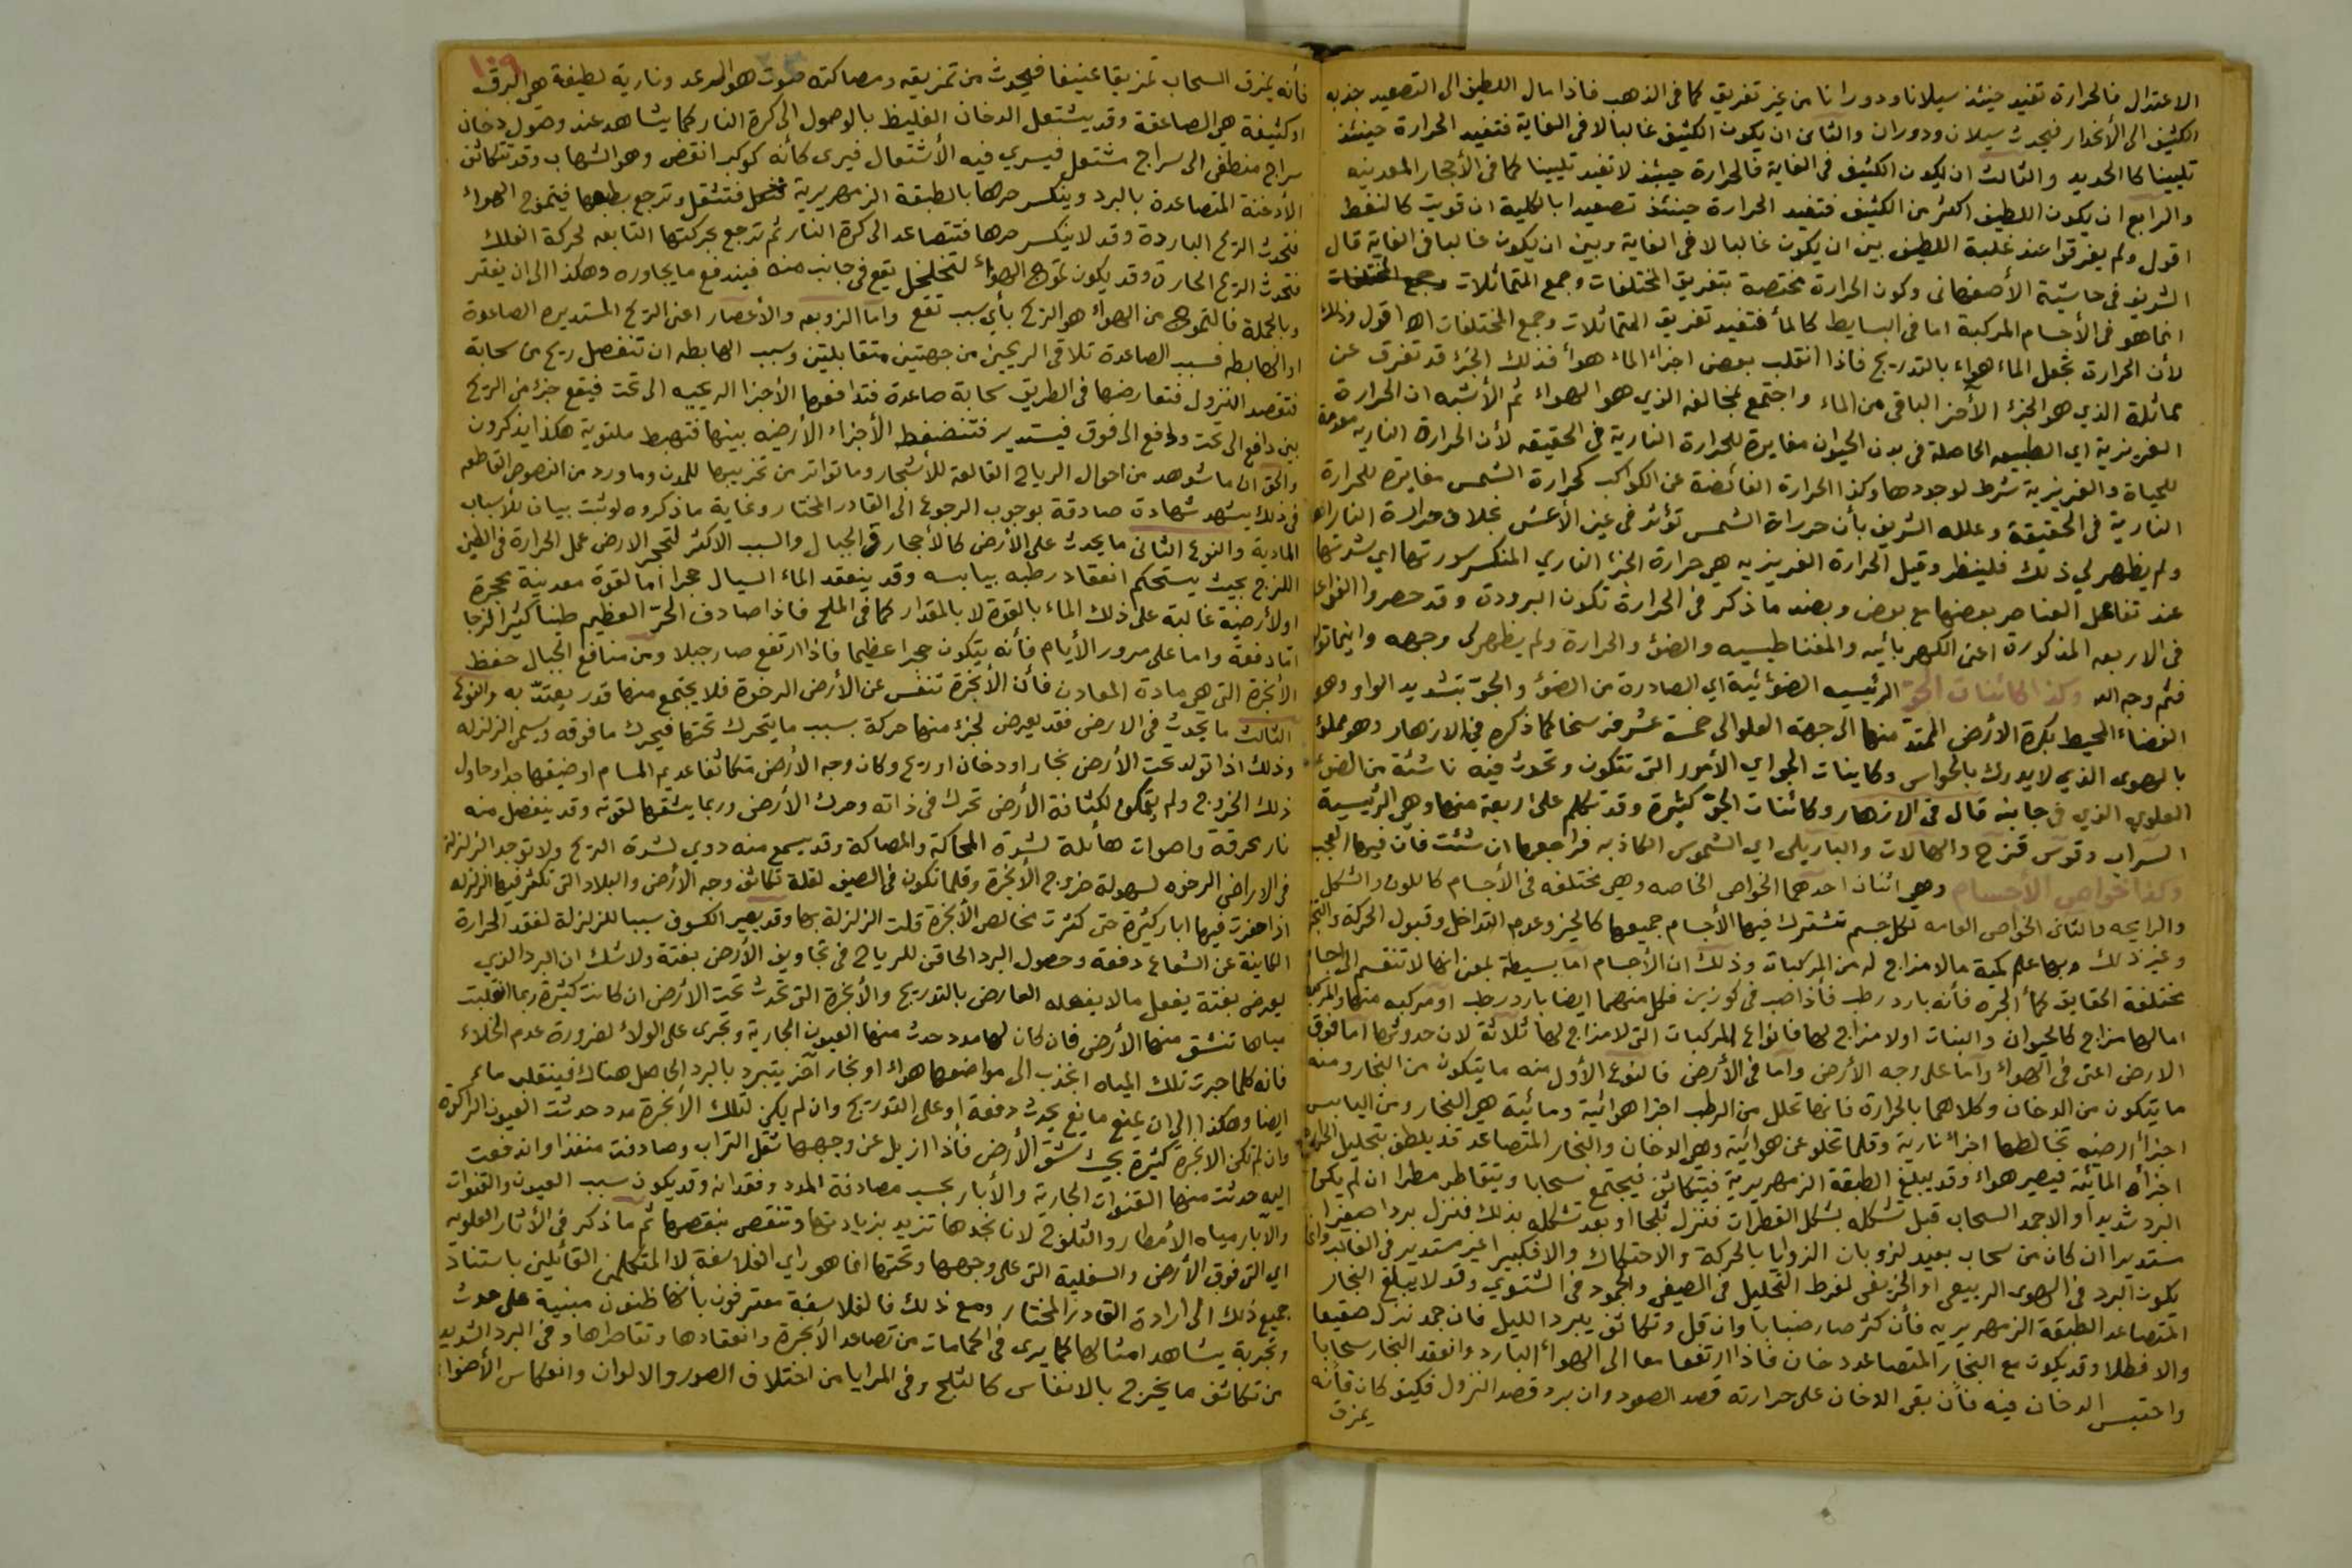 الاعتدال فالحرارة تفيد حينئذ سيلانا ودورانا من غير تفريق كما في الذهب فاذا مال اللطيف الى التصعيد جذبه
الكثيف الى الأنحدار فيحدث سيلان ودوران والثانى ان يكون الكثيف غالبا لا فى الغاية فتفيد الحرارة حينئذ
تليينا كما الحديد والثالث ان يكون الكثيف فى الغاية فالحرارة حينئذ لا تفيد تليينا كما فى الأحجار المعدنيه
والرابع ان يكون اللطيف اكثر من الكثيف فتفيد الحرارة حينئذ تصعيدا بالكلية ان قويت كالنفط
اقول ولم يفرقوا عند غلبة اللطيف بين ان يكون غالبا لا فى الغاية وبين ان يكون غالبا فى الغاية قال
الشريف فى حاشية الأصفهانى وكون الحرارة مختصة بتفريق المختلفات وجمع المتماثلات وجمع المختلفات
انما هو فى الأجسام المركبة اما فى البسايط كالمأ فتفيد تفريق المتماثلات وجمع المختلفات اه اقول وذلك
لأن الحرارة تجعل الماء هواء بالتدريج فاذا انقلب بعض اجزاء الماء هوأ فذلك الجزء قد تفرق عن
مماثلة الذي هو الجزء الأخر الباقى من الماء واجتمع بمخالفه الذي هو الهواء ثم الأشبه ان الحرارة
الغريزية اي الطبيعه الحاصلة فى بدن الحيوان مغايرة للحرارة النارية فى الحقيقه لأن الحرارة الناريه معدمة
للحياة والغريزية شرط لوجودها وكذا الحرارة الفائضة عن الكواكب كحرارة الشمس مغايرة للحرارة
النارية فى الحقيقة وعلله الشريف بأن حرراة الشمس تؤثر فى عين الأعشى بخلاف حرارة النار اه
ولم يظهر لي ذلك فلينظر وقيل الحرارة الغريزيه هي حرارة الجزء الناري المنكسر سورتها اي شدتها
عند تفاعل العناصر بعضها مع بعض وبضد ما ذكر فى الحرارة تكون البرودة وقد حصروا الفواعل
فى الاربعه المذكورة اعنى الكهربائيه والمغناطيسيه والضؤ والحرارة ولم يظهر لى وجهه واينما تولوا
فثم وجه الله وكذا كائنات الجوّ الرئيسيه الضوئيئية اي الصادرة من الضؤ والجوّ بتشديد الواو وهو
الفضاء المحيط بكرة الأرض الممتد منها الى جهة العلو الى خمسة عشر فرسخا كما ذكره فى الازهار وهو مملؤ
بالهوى الذي لا يدرك بالحواس وكاينات الجو اي الأمور التى تتكون وتحدث فيه ناشئة من الضوء
العلوي الذي فى جانبه قال فى الازهار وكائنات الجوّ كثيرة وقد تكلم على اربعة منها وهى الرئيسية
السراب وقوس قزح والهالات والباريلى اي الشموس الكاذبه فراجعها ان شئت فان فيها العجب
وكذا خواص الأجسام وهي اثنان احدهما الخواص الخاصه وهي مختلفه فى الأجسام كاللون والشكل
والرايحه والثانى الخواص العامه لكل جسم تشترك فيها الأجسام جميعها كالحيز وعدم التداخل وقبول الحركة والتجز
وغير ذلك وبها علم كمية مالامزاج له من المركبات وذلك ان الأجسام اما بسيطة بمعنى انها لا تنقسم الى اجسام
مختلفة الحقايق كمأ الجره فأنه بارد رطب فأذا صب فى كوزين فكل منهما ايضا بارد رطب او مركبه منها والمركبة
اما لها مزاج كالحيوان والنبات اولا مزاج لها فانواع المركبات التى لامزاج لها ثلاثة لان حدوثها اما فوق
الارض اعنى فى الهواء واما على وجه الأرض واما فى الأرض فالنوع الأول منه ما يتكون من البخار ومنه
ما يتكون من الدخان وكلاهما بالحرارة فانها تحلل من الرطب اجزا هوائية ومائية هي البخار ومن اليابس
اجزأ ارضيه تخالطها اجزاء نارية وقلما تخلو عن هوائية وهى الدخان والبخار المتصاعد قد يلطف بتحليل الحرارة
اجزأه المائية فيصير هواء وقد يبلغ الطبقة الزمهريرية فيتكاثف فيجتمع سحابا ويتقاطر مطرا ان لم يكن
البرد شديدا والاجمد السحاب قبل تشكله بشكل القطرات فنزل ثلجا او بعد تشكله بذلك فنزل بردا صغيرا
مستديرا ان كان من سحاب بعيد لذوبان الزوايا بالحركة والاحتكاك والا فكبيرا غير مستدير فى الغالب وانما
يكون البرد فى الهوى الربيعى او الخريفى لفرط التحليل فى الصيفى والجمود فى الشتوي وقد لا يبلغ البخار
المتصاعد الطبقة الزمهريريه فأن كثر صار ضبابا وان قل وتكاثف ببرد الليل فان جمد نزل صقيعا
والا فطلا وقد يكون مع البخار المتصاعد دخان فاذا ارتفعا معا الى الهواء البارد وانعقد البخار سحابا
واحتبس الدخان فيه فأن بقى الدخان على حرارته قصد الصعود وان برد قصد النزول فكيف كان فأنه
يمزق
١٠٩
فأنه يمزق السحاب تمزيقا عنيفا فيحدث من تمزيقه ومصاكته صوت هو الرعد ونارية لطيفة هي البرق
او كثيفة هي الصاعقة وقد يشتعل الدخان الغليظ بالوصول الى كرة النار كما يشاهد عند وصول دخان
سراج منطفى الى سراج مشتعل فيسري فيه الأشتعال فيرى كأنه كوكب انقض وهو الشهاب وقد تتكاثف
الأدخنة المتصاعدة بالبرد وينكسر حرها بالطبقة الزمهريرية فتثقل وترجع بطبعها فيتموج الهواء
فتحدث الريح الباردة وقد لا ينكسر حرها فتتصاعد الى كرة النار ثم ترجع بحركتها التابعه لحركة الفلك
فتحدث الريح الحارة وقد يكون تموج الهواء لتخلخل يقع فى جانب منه فيندفع ما يجاوره وهكذا الى ان يفتر
وبالجملة فالتموج من الهواء هو الريح بأي سبب تقع واما الزوبعه والأعصار اعنى الريح المستديره الصاعدة
او الهابطه فسبب الصاعدة تلاقى الريحين من جهتين متقابلتين وسبب الهابطه ان تنفصل ريح من سحابة
فتقصد النزول فتعارضها فى الطريق سحابة صاعدة فتدافعها الأجزا الريحيه الى تحت فيقع جزء من الريح
بين دافع الى تحت ودافع الى فوق فيستدير فتنضغط الأجزاء الأرضيه بينها فتهبط ملتوية هكذا يذكرون
والحق ان ما شوهد من احوال الرياح القالعة للأشجار وما تواتر من تخريبها للمدن وما ورد من النصوص القاطعه
فى ذلك يشهد شهادة صادقة بوجوب الرجوع الى القادر المختار وغاية ما ذكروه لو ثبت بيان للأسباب
المادية والنوع الثانى ما يحدث على الأرض كالأحجار والجبال والسبب الاكثر لتحجر الارض عمل الحرارة فى الطين
اللزج بحيث يستحكم انعقاد رطبه بيابسه وقد ينعقد الماء السيال حجرا اما لقوة معدنية محجرة
اولأرضية غالبة على ذلك الماء بالقوة لا بالمقدار كما فى الملح فاذا صادف الحرّ العظيم طينا كثيرا لزجا
امّا دفعة واما على مرور الأيام فأنه يتكون حجرا عظيما فاذا ارتفع صار جبلا ومن منافع الجبال حفظ
الأبخرة التى هي مادة المعادن فأن الأبخرة تنفس عن الأرض الرخوة فلا يجتمع منها قدر يعتدّ به والنوع
الثالث ما يحدث فى الارض فقد يعرض لجزء منها حركة بسبب ما يتحرك تحتها فيحرك ما فوقه ويسمى الزلزله
وذلك اذا تولد تحت الأرض بخار او دخان او ريح وكان وجه الأرض متكاثفا عديم المسام او ضيقها جدا وحاول
ذلك الخروج ولم يتمكن لكثافة الأرض تحرك فى ذاته وحرك الأرض وربما يشقها لقوته وقد ينفصل منه
نار محرقة واصوات هائلة لشدة المحاكة والمصاكة وقد يسمع منه دوي لشدة الريح ولا توجد الزلزلة
فى الاراضى الرخوه لسهولة خروج الأبخرة وقلما تكون فى الصيف لقلة تكاثف وجه الأرض والبلاد التى تكثر فيها الزلزله
اذا حفرت فيها ابار كثيرة حتى كثرت مخالص الأبخرة قلت الزلزلة بها وقد يصير الكسوف سببا للزلزلة لفقد الحرارة
الكاينة عن الشعاع دفعة وحصول البرد الحاقن للرياح فى تجاويف الأرض بغتة ولاشك ان البرد الذي
يعرض بغتة يفعل مالا يفعله العارض بالتدريج والأبخرة التى تحدث تحت الأرض ان كانت كثيرة ربما انقلبت
مياها تنشق منها الأرض فان كان لها مدد حدث منها العيون الجارية وتجرى على الولاء لضرورة عدم الخلاء
فانه كلما جرت تلك المياه انجذب الى مواضعها هواء او بخار آخر يتبرد بالبرد الحاصل هناك فينقلب ماء
ايضا وهكذا الى ان يمنع مانع يحدث دفعة او على التدريج وان لم يكن لتلك الأبخرة مدد حدثت العيون الراكدة
وان لم تكن الابخرة كثيرة بحيث تشق الأرض فأذا ازيل عن وجهها ثقل التراب وصادفت منفذا واندفعت
اليه حدثت منها القنوات الجارية والأبار بحسب مصادفة المدد وفقدانه وقد يكون سبب العيون والقنوات
والآبار مياه الأمطار والثلوج لانا نجدها تزيد بزيادتها وتنقص بنقصها ثم ما ذكر فى الأثار العلويه
اي التى فوق الأرض والسفلية التى على وجهها وتحتها انما هو راي الفلاسفة لا المتكلمين القائلين باستناد
جميع ذلك الى ارادة القادر المختار ومع ذلك فالفلاسفة معترفون بأنها ظنون مبنية على حدث
وتجربة يشاهد امثالها كما يرى فى الحمامات من تصاعد الأبخرة وانعقادها وتقاطرها وفى البرد الشديد
من تكاثف ما يخرج بالانفاس كالثلج وفى المرايا من اختلاف الصور والالوان وانعكاس الأضواء